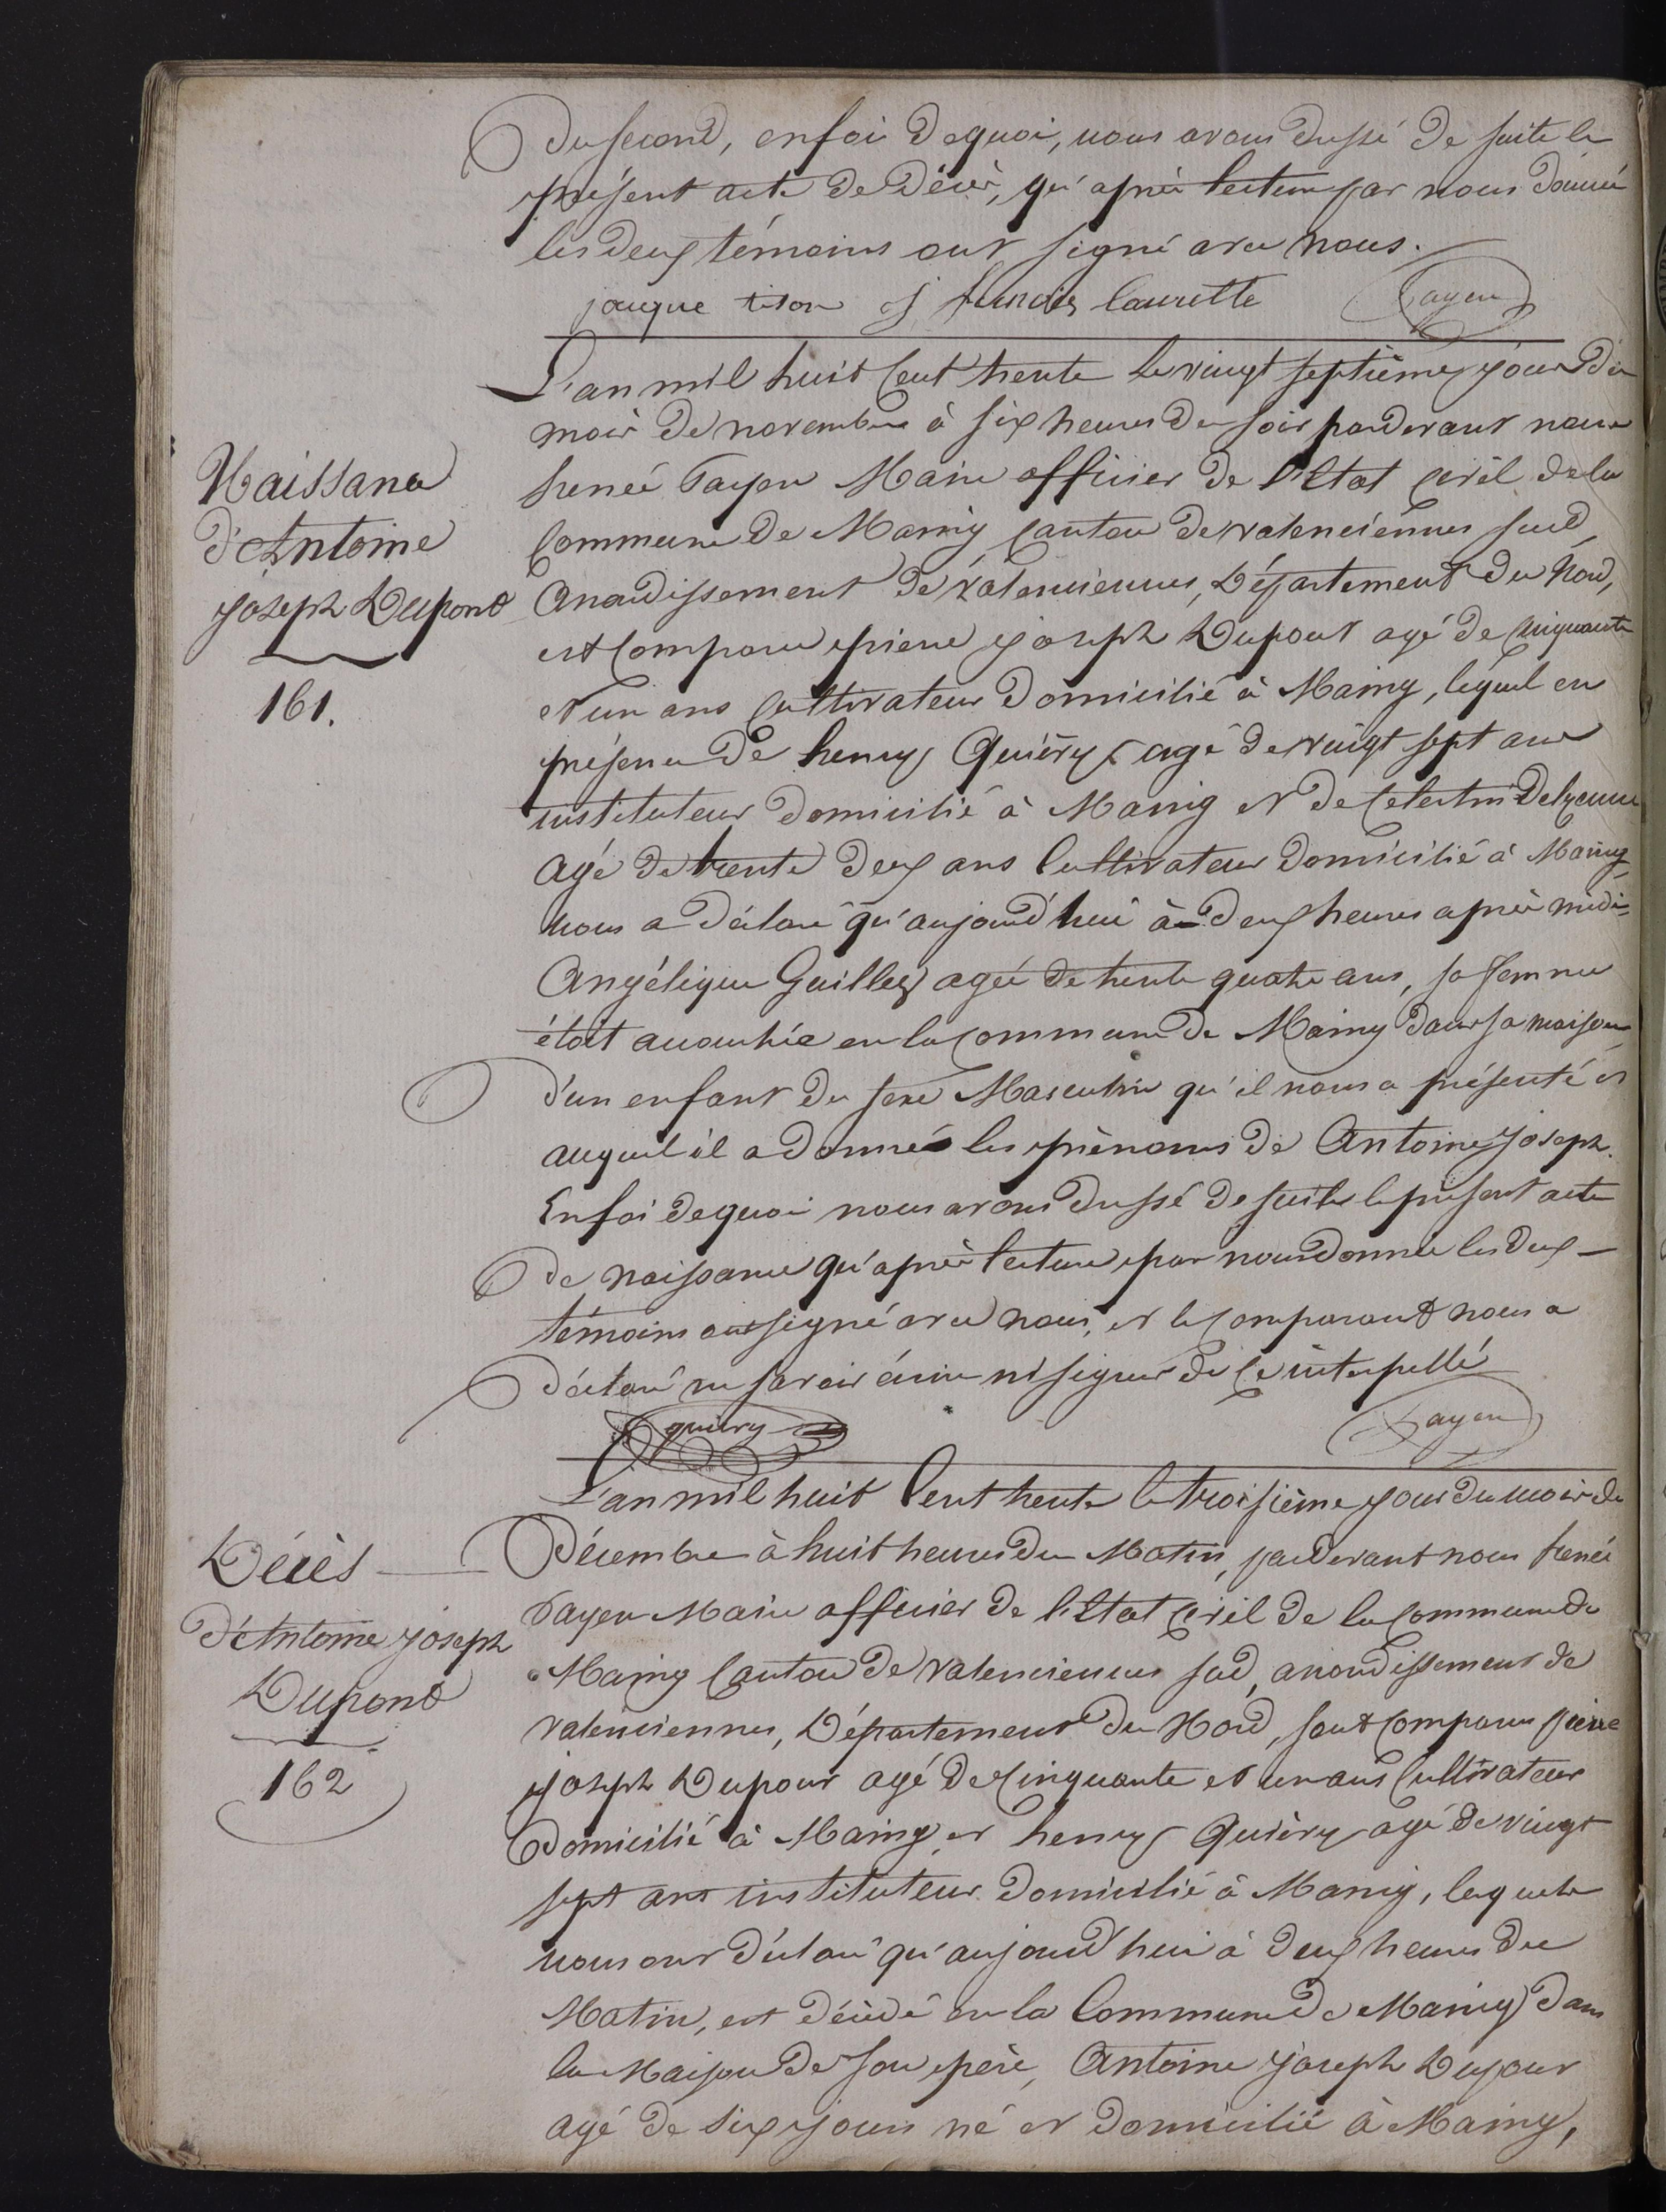 du second, en foi de quoi, nous avons dressé de suite le
présent acte de décès, qu'après lecture par nous donnée
les deux témoins ont signé avec nous.
jacque tison j francois laurette Payen
L'an mil huit Cent trente le vingt septième jour du
mois de novembre à six heures du soir pardevant nous
Naissance
d'Antoine
joseph Dupont
161.
René Payen Maire officier de l'Etat Civil de la
Commune de Maing Canton de valenciennes sud,
Arrondissement de valenciennes, Département du Nord,
est Comparu pierre joseph Dupont agé de Cinquante
et un ans Cultivateur Domicilié à Maing, lequel en
présence de henry Quièry agé de vingt sept ans
instituteur domicilié à Maing et de Celestin
agé de trente deux ans Cultivateur domicilié à Maing,
nous a déclaré qu'aujourd'hui à deux heures après midi,
Angélique Guillez agée de trente quatre ans, sa femme
étoit accouchée en la Commune de Maing dans sa maison,
d'un enfant du sexe Masculin qu'il nous a présenté et
auquel il a donné les prènoms de Antoine joseph.
En foi de quoi nous avons dressé de suite le présent acte
de naissance qu'après lecture par nous donnée les deux
témoins ont signé avec nous, et le Comparant nous a
déclaré ne savoir écrire ni signer de Ce interpellé
quiery Payen
L'an mil huit Cent trente le troisième jour du mois de
Décès
d'Antoine joseph
Dupont
162
Décembre à huit heures du Matin, pardevant nous René
Payen Maire officier de l'Etat Civil de la Commune de
Maing Canton de valenciennes sud, arrondissement de
valenciennes, Département du Nord, sont Comparus pierre
joseph Dupont agé de Cinquante et un ans Cultivateur
Domicilié à Maing, et henry Quièry agé de vingt
sept ans instituteur domicilié à Maing, lesquels
nous ont déclaré qu'aujourd'hui à deux heures du
Matin, est décédé en la Commune de Maing dans
la Maison de son père, Antoine joseph Dupont
agé de six jours né et domicilié à Maing,